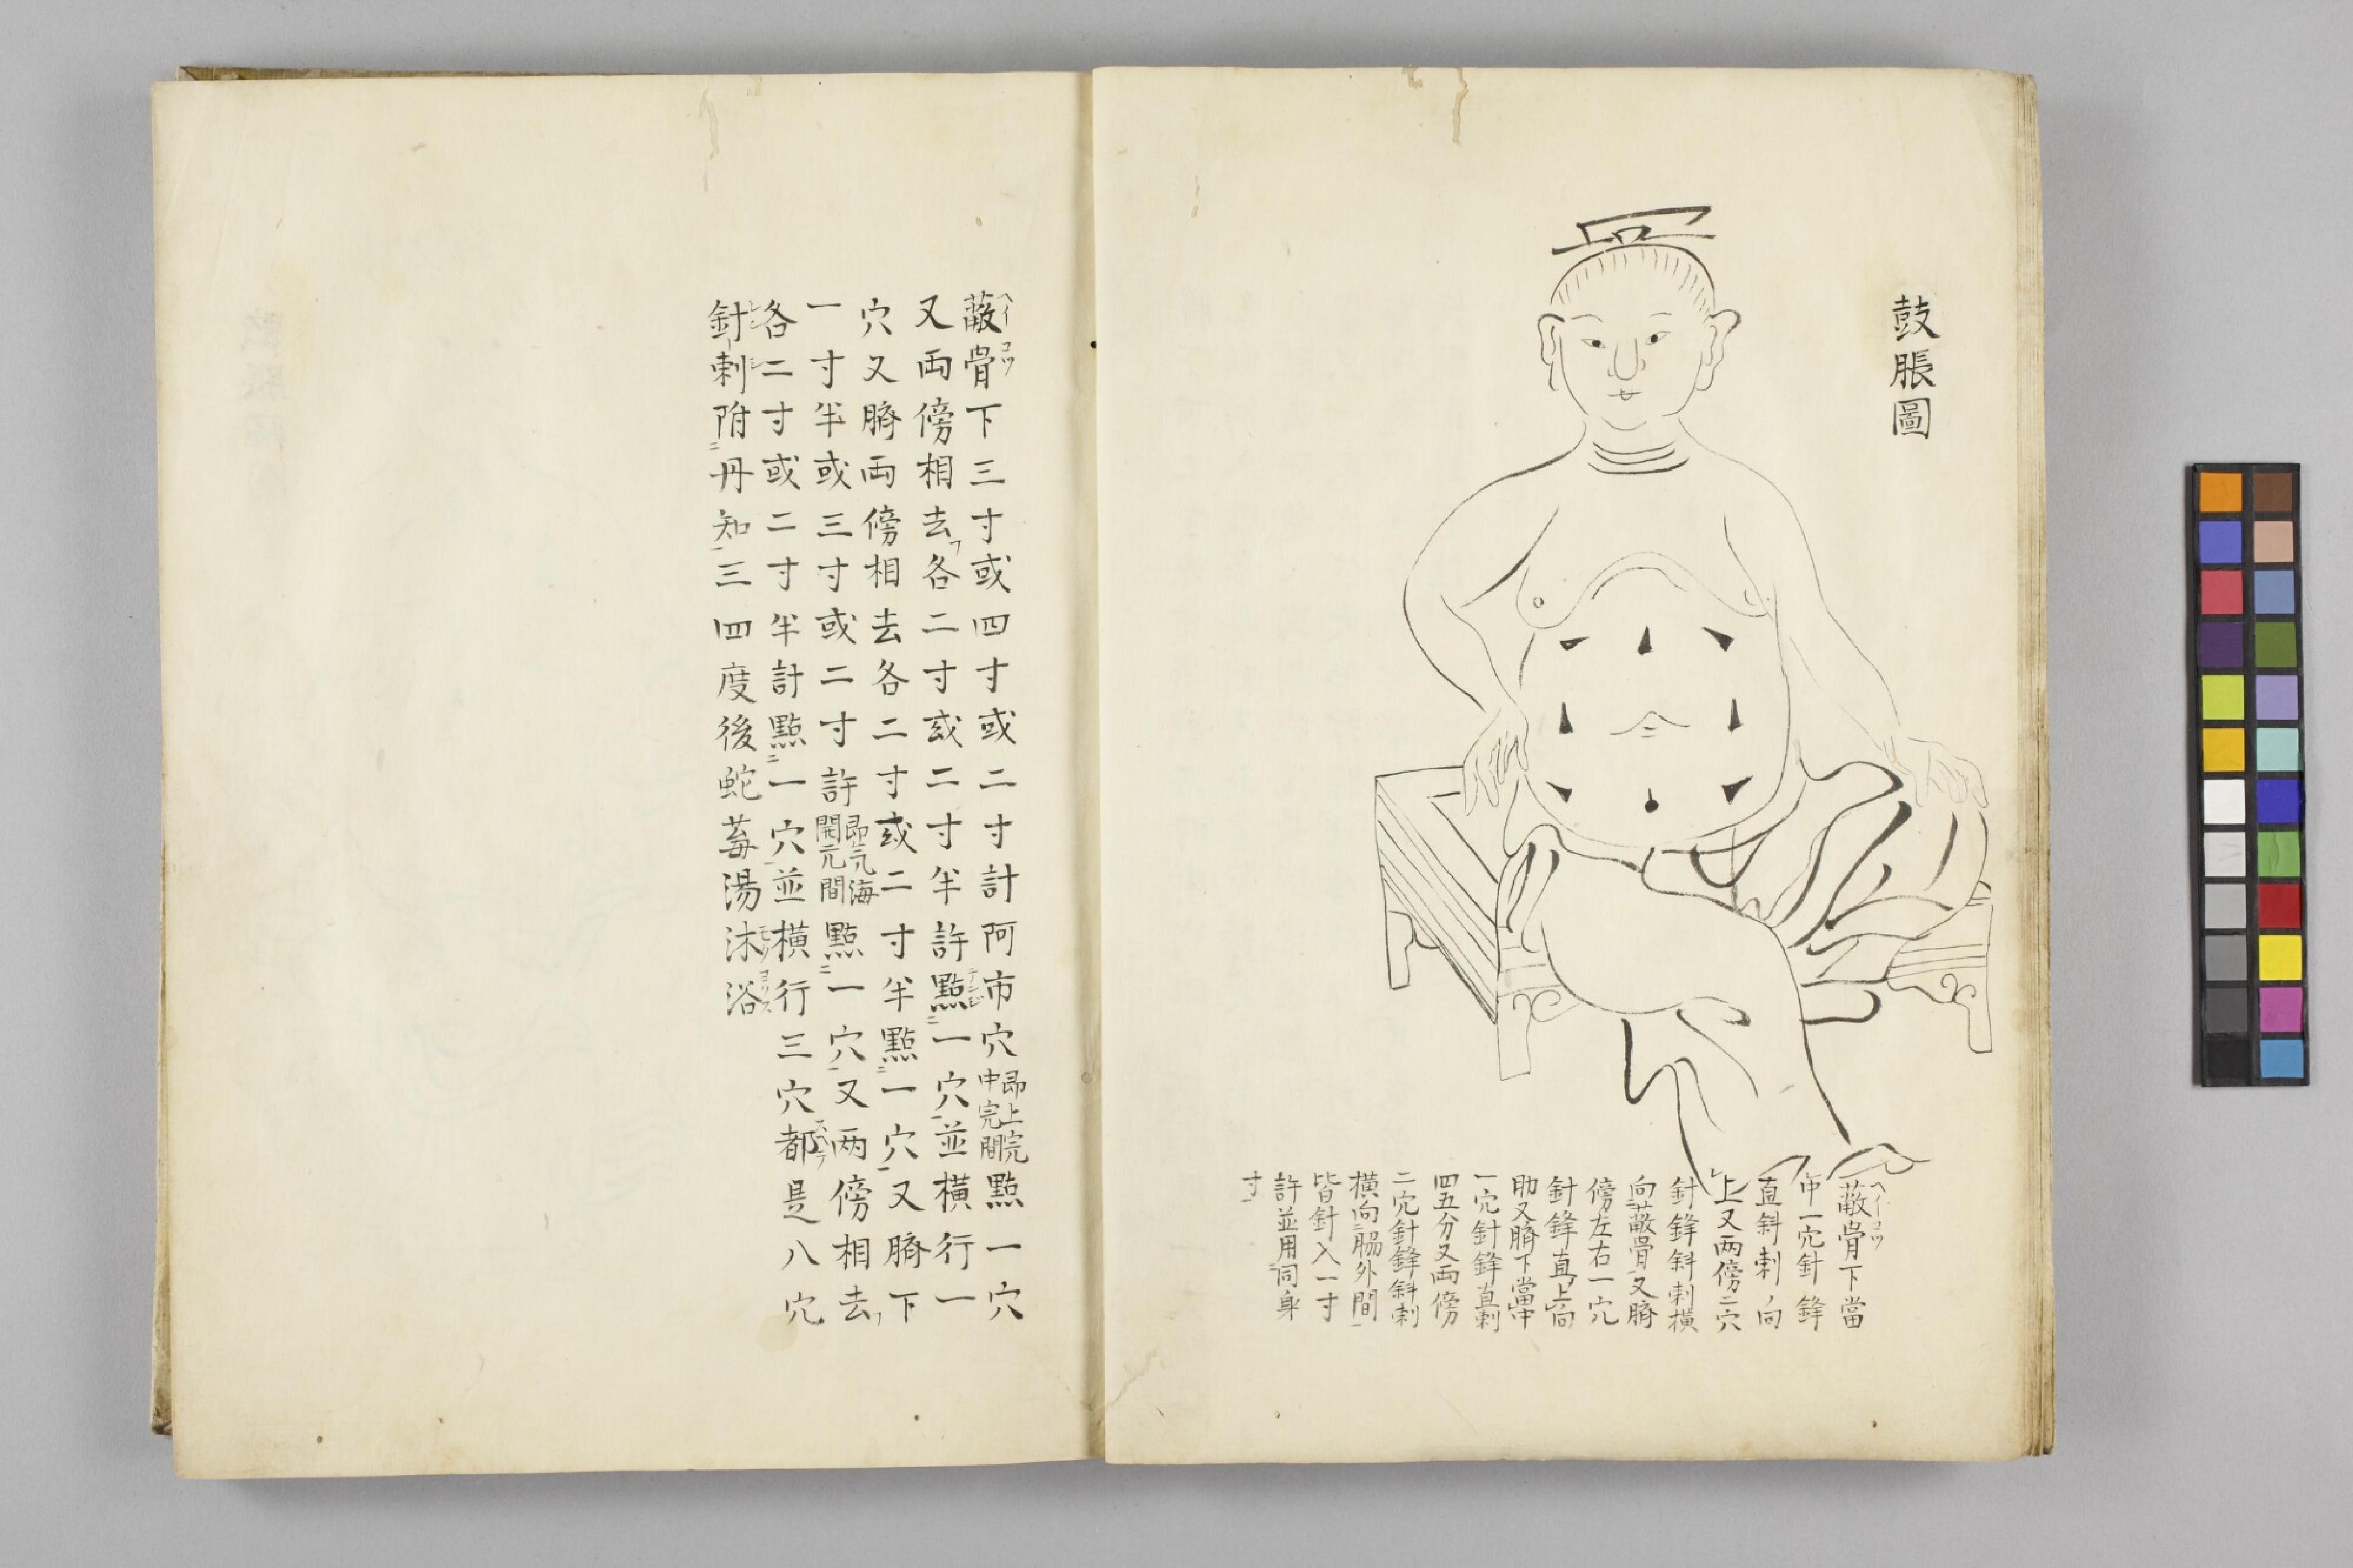 鼓脹圖
蔽骨下當
中一穴針鋒
直斜刺向
上又両傍二穴
針鋒斜刺横
向蔽骨又臍
傍左右一穴
針鋒直上向
肋又臍下當中
一穴針鋒直刺
四五分又両傍
二穴針鋒斜刺
横向腸外間
皆針入一寸
許並用同身
寸
蔽骨下三寸或四寸或二寸計阿市穴即上完中完間點一穴
又両傍相去各二寸或二寸半許點一穴並横行一
穴又臍両傍相去各二寸或二寸半點一穴又臍下
一寸半或三寸或二寸許即元海開元間點一穴又両傍相去
各二寸或二寸半計點一穴並横行三穴都是八穴
針刺附丹知三四度後蛇苺湯沐浴